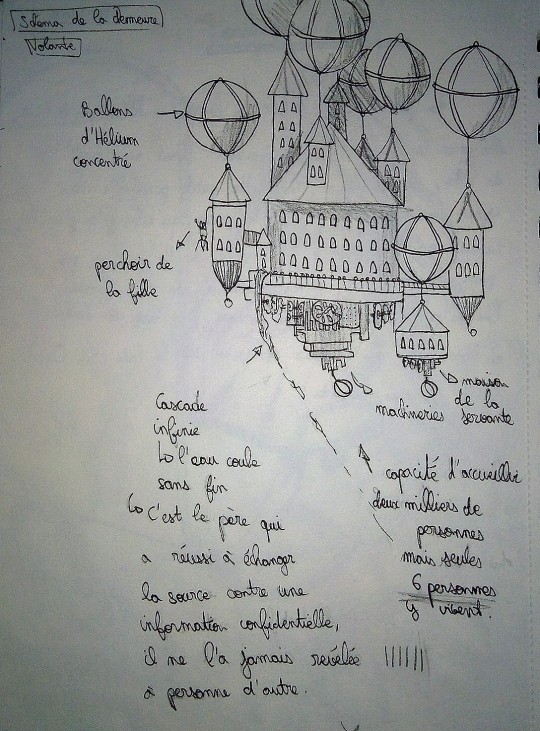 Schéma de la Demeure
Volante
Ballons
d'Hélium
concentré
perchoir de
la fille
maison
de la
servante
machineries
Cascade
infinie
↳ l'eau coule
sans fin
↳ C'est le père qui
a réussi à échanger
la source contre une
information confidentielle,
il ne l'a jamais révélée
à personne d'autre.
capacité d'accueillir
deux milliers de
personnes
mais seules
6 personnes
y vivent.